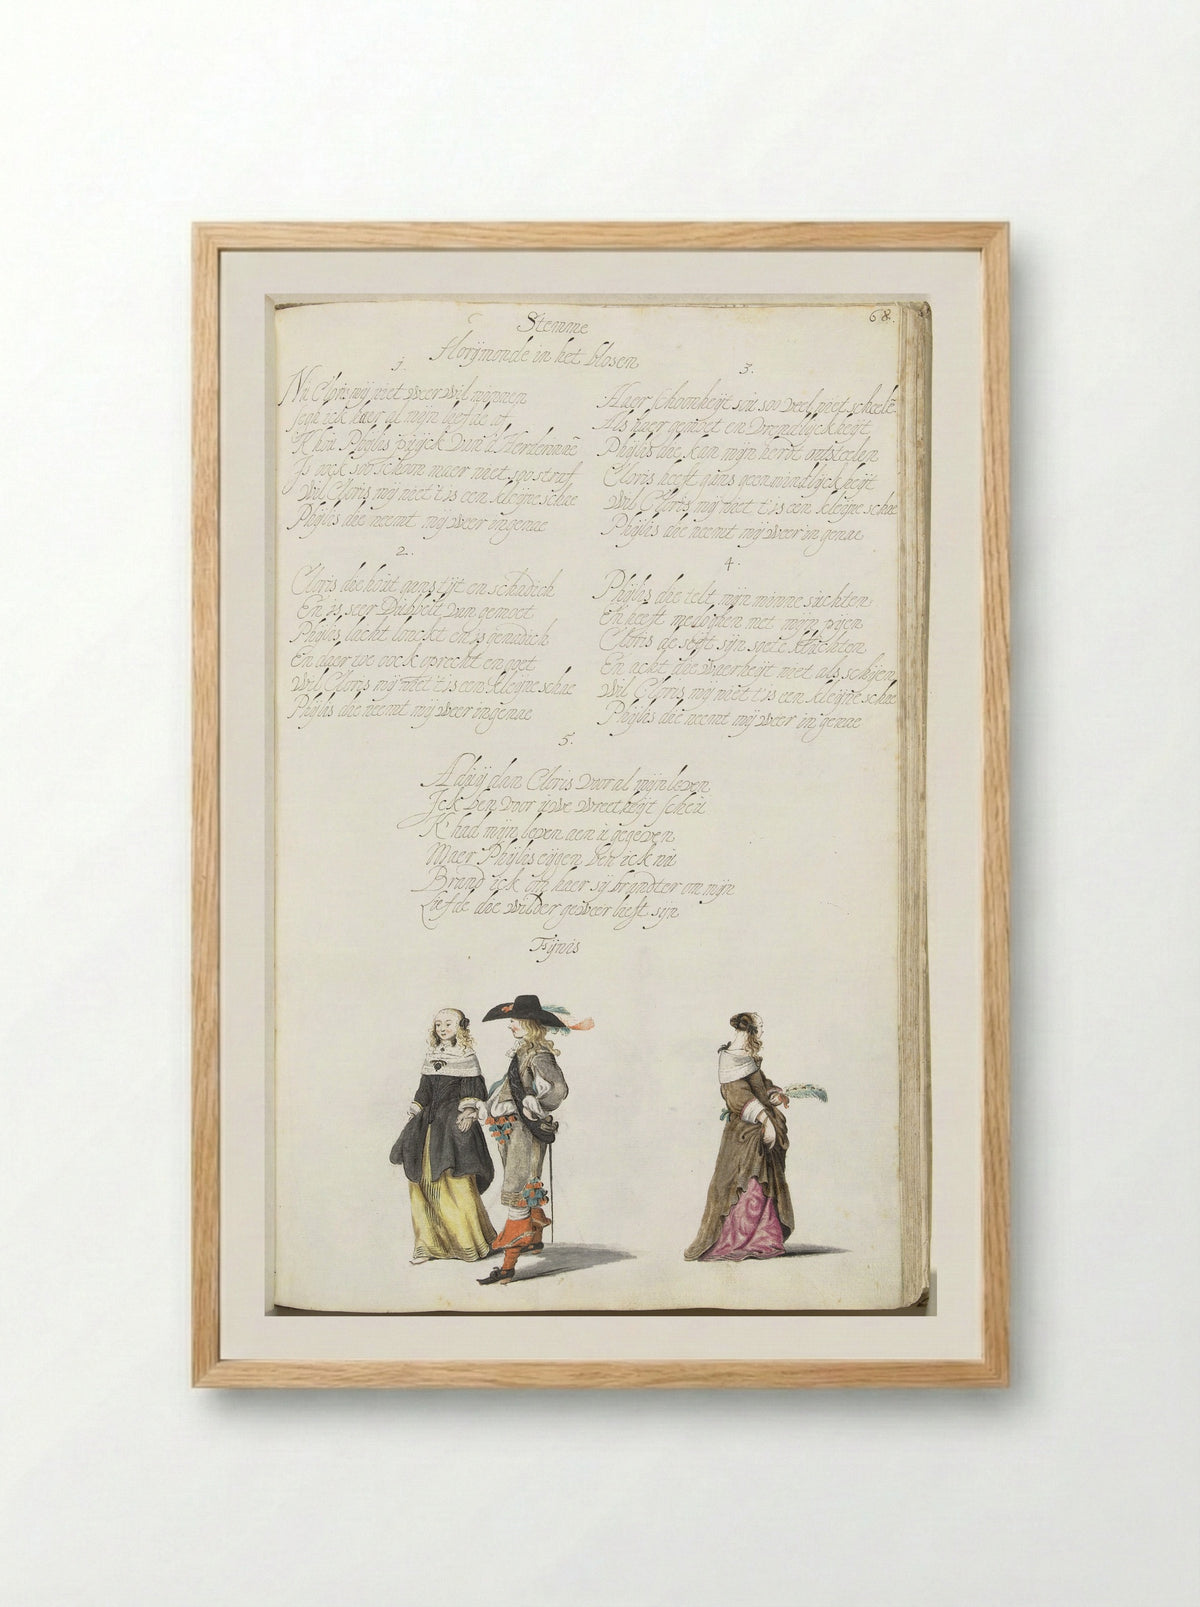 68.
Stemme
Florijmonde in het blosen
1.
Nu Cloris mij niet weer wil minnen
segh ick haer al mijn liefde of
K hou Phijlis van u Herderinnē
Is oock soo schoon maer niet soo straf
Wil Cloris mij niet t'is een kleijne schae
Phijlis die neemt mij weer in genae
2.
Cloris die hout aans tijt en schadich
En is seer Dubbelt van gemoet
Phijlis lacht lonckt en is genadich
En daer toe oock oprecht en goet
Wil Cloris mij niet t'is een kleijne schae
Phijlis die neemt mij weer in genae
3.
Haer schoonheijt sou soo veel niet scheelē
Als haer gemoet en vrendlijckheijt
Phijlis die kan mijn herte ontsteelen
Cloris heeft gans geen mindlijckheijt
Wil Cloris mij niet t'is een kleijne schae
Phijlis die neemt mij weer in genae
4.
Phijlis die telt mijn minne suchten
En heeft medoghen met mijn pijen
Cloris de sijn soete
En acht die waerheijt niet als schijen
Wil Cloris mij niet t'is een kleijne schae
Phijlis die neemt mij weer in genae
5.
Adijij dan Cloris voor al mijn leven
Ick ben voor uwe wreetheijt scheu
K' had mijn leven aen u gegeven
Maer Phijlis eijgen ben ick nu
Brand ick om haer sij brandter om mijn
Liefde die wilder geweer lieft sijn
Fijnis